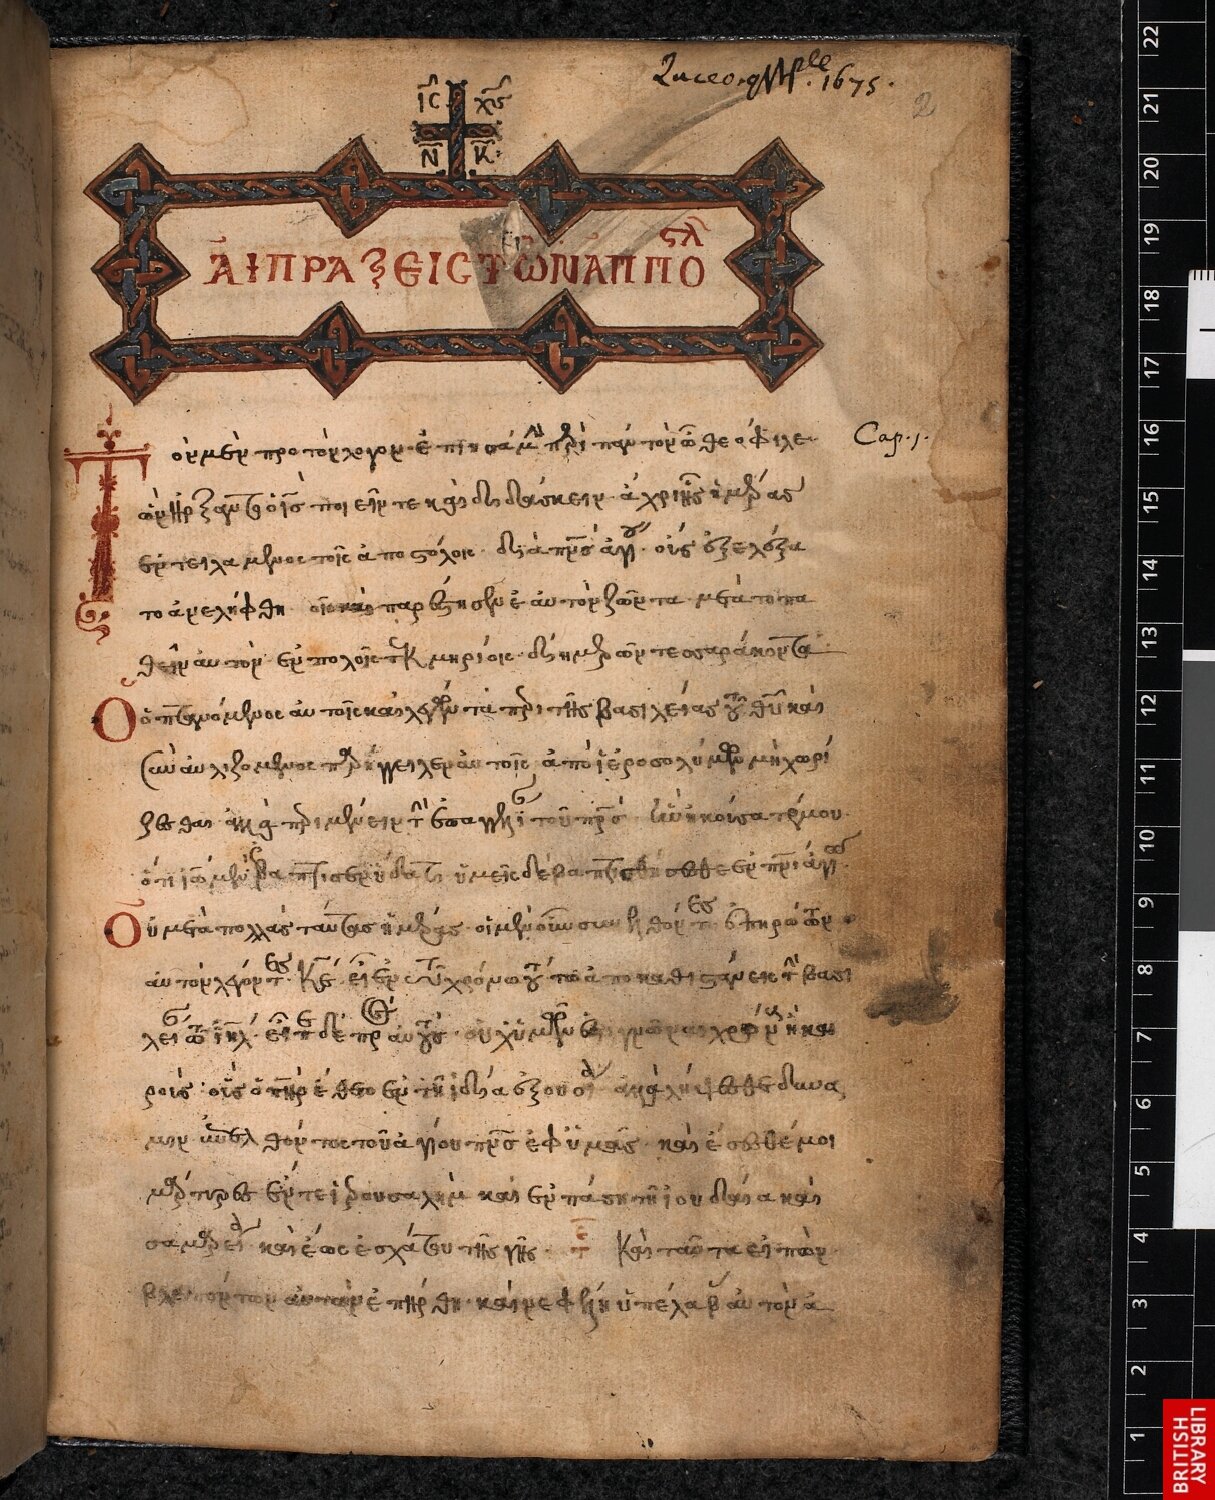 1675.
2
ΙϹ ΧϹ
Ν Κ
ΑΙ ΠΡΑΞΕΙϹ ΤΩΝ ΑΠΠΟϚΛ
Cap. 1.
Τὸν μὲν πρῶτον λόγον ἐποιησάμην περὶ πάντων ὦ θεόφιλε
ὧν ἤρξατο ὁ ἰς ποιεῖν τε καὶ διδάσκειν ἄχρι ἧς ἡμέρας
ἐντειλάμενος τοῖς ἀποστόλοις διὰ πνς ἁγίου οὓς ἐξελέξα
το ἀνελήφθη οἷς καὶ παρέστησεν ἑαυτὸν ζῶντα μετὰ το πα
θεῖν αὐτὸν ἐν πολλοῖς τεκμηρίοις δι ἡμερῶν τεσσαράκοντα
Ὀπτανόμενος αὐτοῖς καὶ λέγων τὰ περὶ τῆς βασιλείας τοῦ θυ καὶ
συναυλιζόμενος παρήγγειλεν αὐτοῖς ἀπὸ ἱεροσολύμων μὴ χωρί
ζεσθαι ἀλλὰ περιμένειν τὴν ἐπαγγελίαν τοῦ πρς ἣν ἠκούσατέ μου
ὅτι ἰωάννης μὲν ἐβάπτισεν ὕδατι ὑμεῖς δὲ βαπτισθήσεσθε ἐν πνι ἁγίω
Οὐ μετὰ πολλὰς ταύτας ἡμέρας οἱ μὲν οὖν συνελθόντες ἐπηρώτων
αὐτὸν λέγοντες κε εἰ ἐν τῷ χρόνω τούτω ἀποκαθιστάνεις τὴν βασι
λείαν τῶ ιηλ εἶπε δὲ πρὸς αὐτούς οὐχ ὑμῶν ἐστι γνῶναι χρόνους ἢ και
ροὺς οὓς ὁ πηρ ἔθετο ἐν τῇ ἰδίᾳ ἐξουσίᾳ ἀλλὰ λήψεσθε δύνα
μιν ἐπελθόντος τοῦ ἁγίου πνς ἐφ ὑμᾶς καὶ ἔσεσθέ μοι
μάρτυρες ἔν τε ἱερουσαλὴμ καὶ ἐν πάσῃ τῇ ἰουδαία καὶ
σαμαρεία καὶ ἕως ἐσχάτου τῆς γῆς Καὶ ταῦτα εἰπὼν
βλεπόντων αὐτῶν ἐπήρθη καὶ νεφέλη ὑπέλαβεν αὐτὸν ἀ
22
21
20
19
18
17
16
15
14
13
12
11
10
9
8
7
6
5
4
3
2
1
BRITISH
LIBRARY